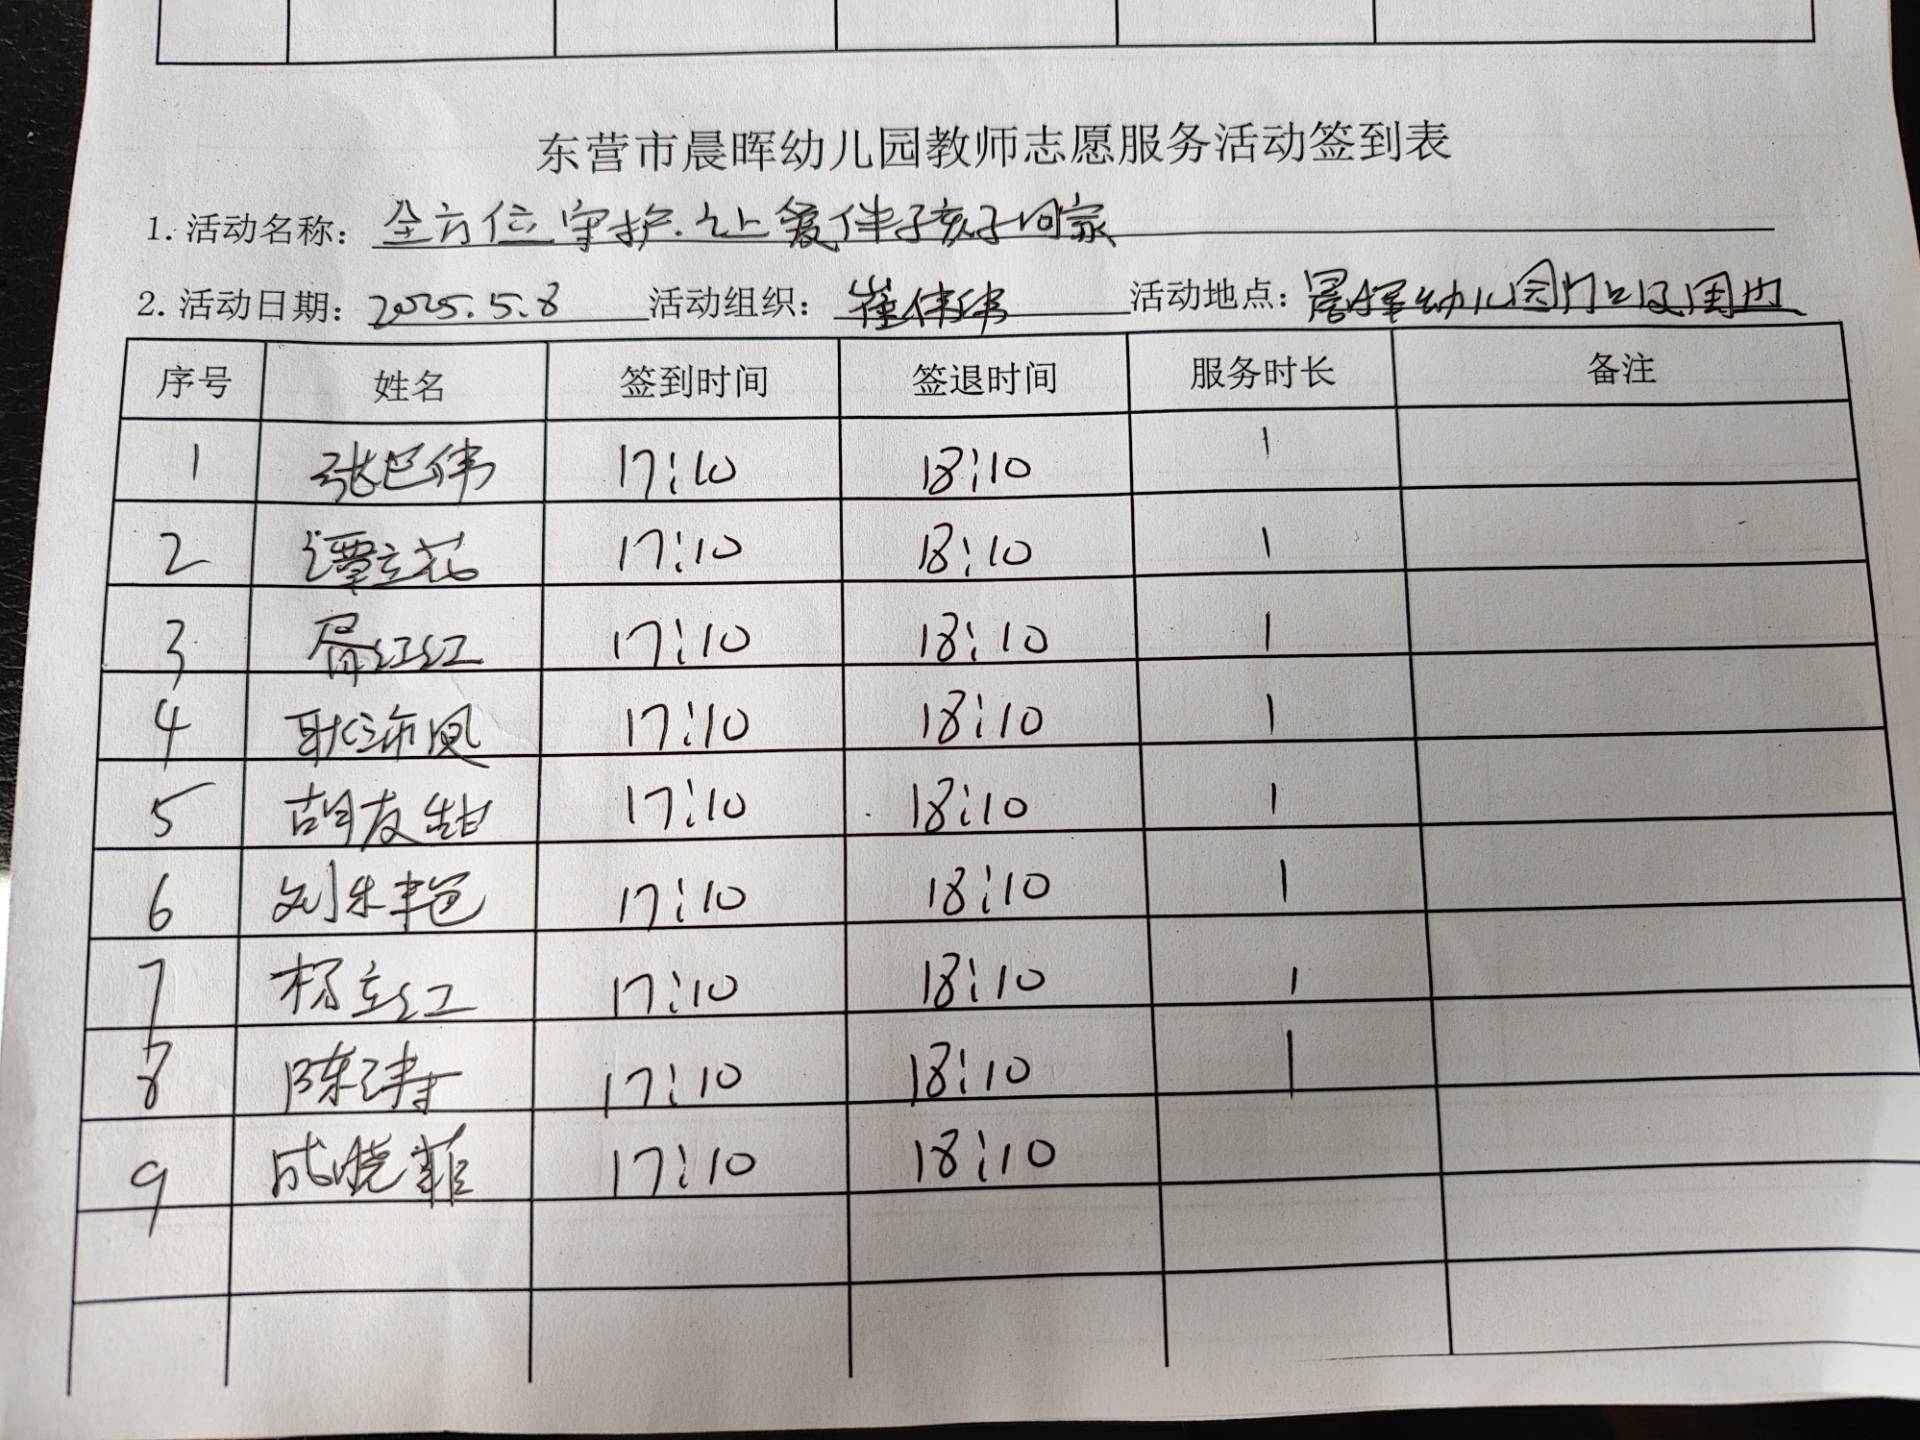 东营市晨晖幼儿园教师志愿服务活动签到表
1.活动名称: 全方位守护.让爱伴孩子回家
2.活动日期: 2025.5.8 活动组织: 崔伟伟 活动地点: 晨晖幼儿园门口及周边
序号 姓名 签到时间 签退时间 服务时长 备注
1 17:10 18:10 1
2 谭立花 17:10 18:10 1
3 胥红红 17:10 18:10 1
4 17:10 18:10 1
5 胡友甜 17:10 18:10 1
6 17:10 18:10 1
7 杨立红 17:10 18:10 1
8 陈 17:10 18:10 1
9 成晓菲 17:10 18:10